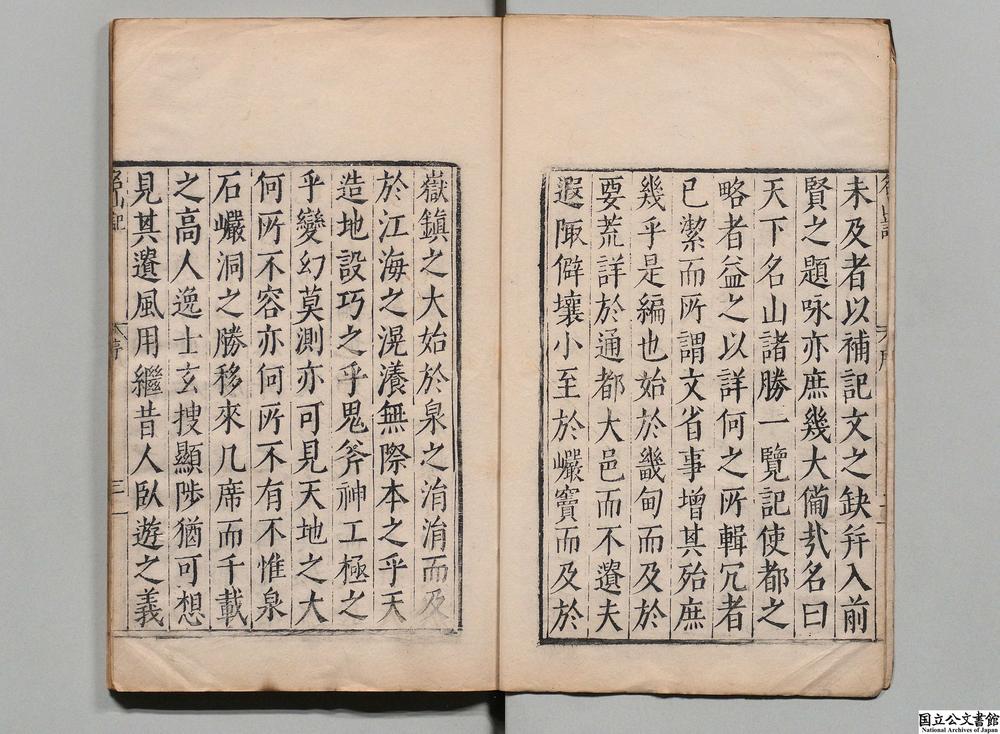 未及者以補記文之缺并入前
賢之題咏亦庶幾大備㢤名曰
天下名山諸勝一覽記使都之
略者益之以詳何之所輯冗者
已潔而所謂文省事增其殆庶
幾乎是編也始於畿甸而及於
要荒詳於通都大邑而不遺夫
遐陬僻壤小至於巖竇而及於
嶽鎮之大始於泉之涓涓而及
於江海之滉瀁無際本之乎天
造地設巧之乎鬼斧神工極之
乎變幻莫測亦可見天地之大
何所不容亦何所不有不惟泉
石巖洞之勝移來几席而千載
之高人逸士玄搜顯陟猶可想
見其遺風用繼昔人臥遊之義
名山記
序
三
国立公文書館
National Archives of Japan